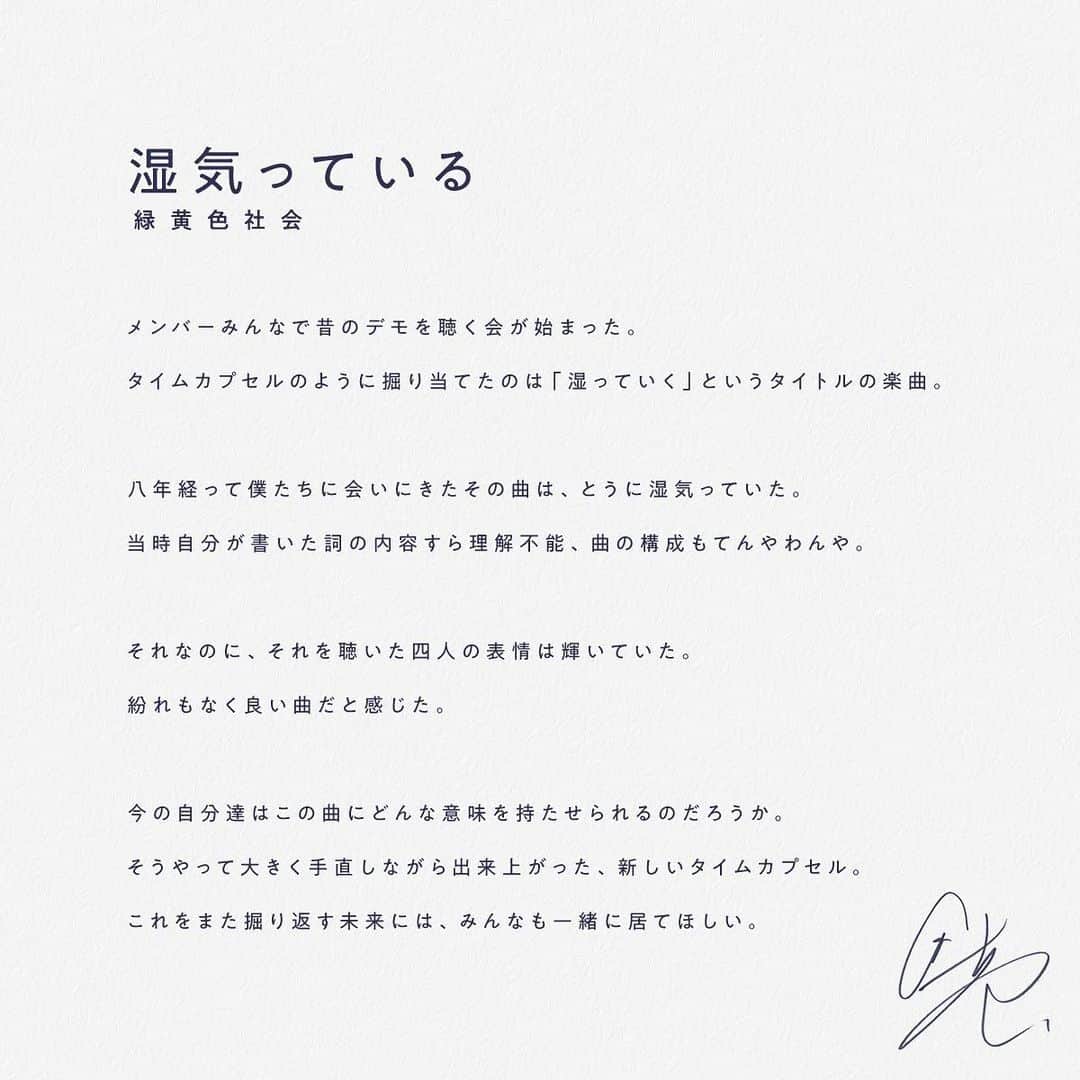 湿気っている
緑黄色社会
メンバーみんなで昔のデモを聴く会が始まった。
タイムカプセルのように掘り当てたのは「湿っていく」というタイトルの楽曲。
八年経って僕たちに会いにきたその曲は、とうに湿気っていた。
当時自分が書いた詞の内容すら理解不能、曲の構成もてんやわんや。
それなのに、それを聴いた四人の表情は輝いていた。
紛れもなく良い曲だと感じた。
今の自分達はこの曲にどんな意味を持たせられるのだろうか。
そうやって大きく手直しながら出来上がった、新しいタイムカプセル。
これをまた掘り返す未来には、みんなも一緒に居てほしい。